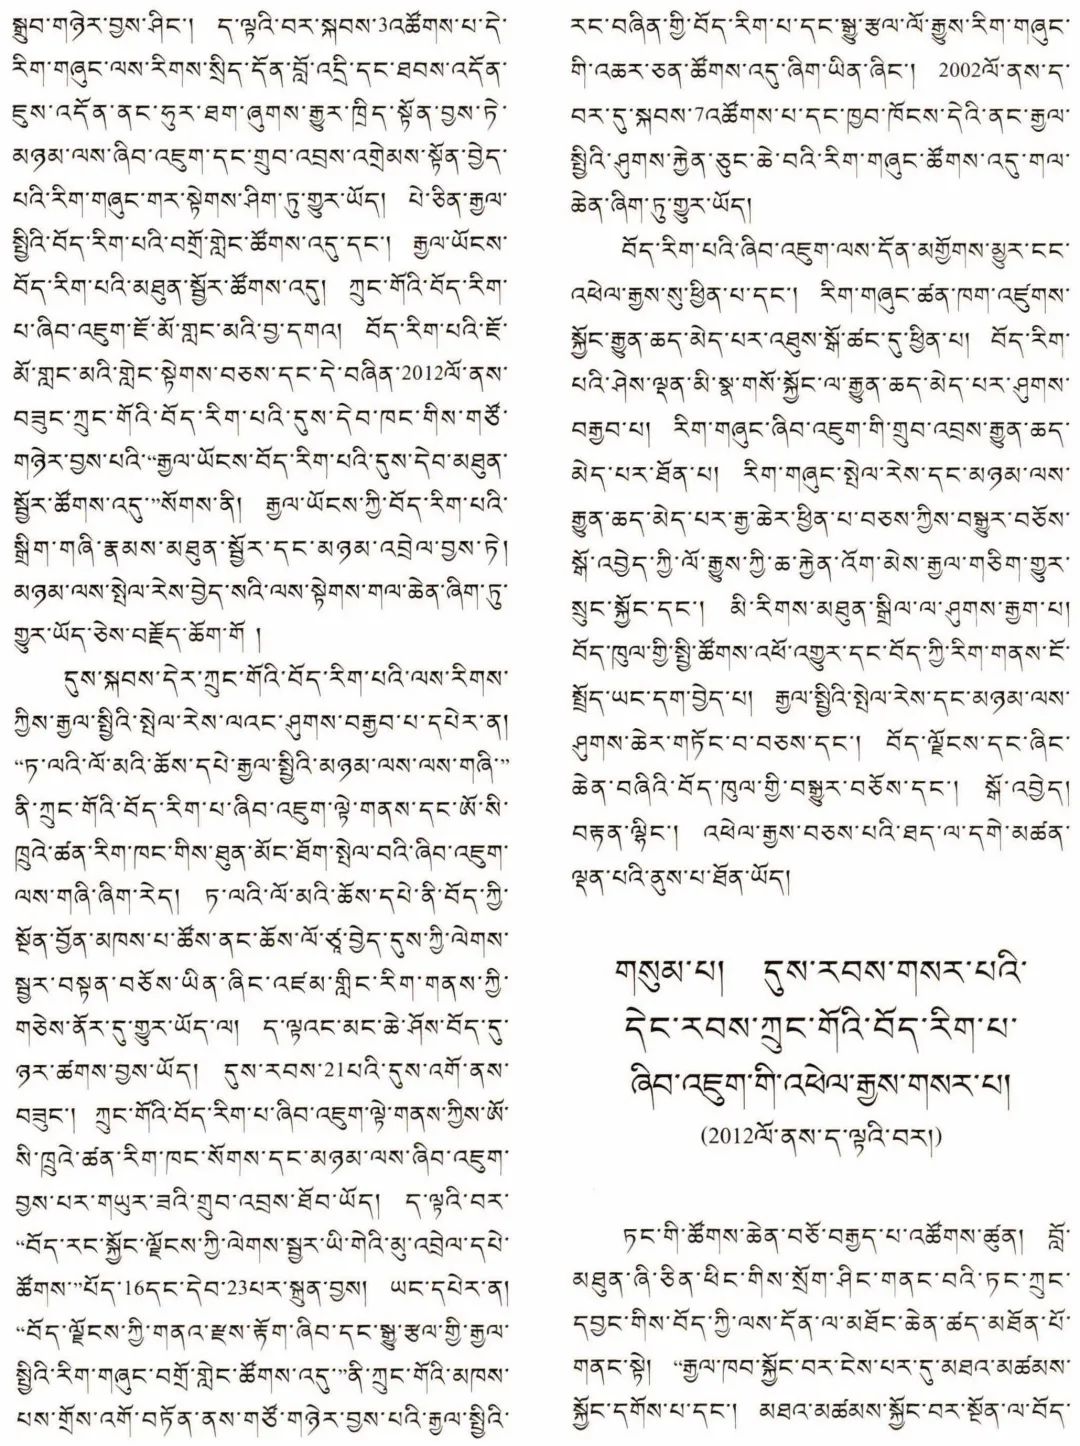 སྒྲུབ་གཉེར་བྱས་ཤིང་། ད་ལྟའི་བར་སྐབས་3འཚོགས་པ་དེ་
རིག་གཞུང་ལས་རིགས་སྲིད་དོན་བློ་འདྲི་དང་ཐབས་འདོན་
ཇུས་འདོན་ནང་ཧུར་ཐག་ཞུགས་རྒྱུར་ཁྲིད་སྟོན་བྱས་ཏེ་
མཉམ་ལས་ཞིབ་འཇུག་དང་གྲུབ་འབྲས་འགྲེམས་སྟོན་བྱེད་
པའི་རིག་གཞུང་གར་སྟེགས་ཤིག་ཏུ་གྱུར་ཡོད། པེ་ཅིན་རྒྱལ་
སྤྱིའི་བོད་རིག་པའི་བགྲོ་གླེང་ཚོགས་འདུ་དང་། རྒྱལ་ཡོངས་
བོད་རིག་པའི་མཐུན་སྦྱོར་ཚོགས་འདུ། ཀྲུང་གོའི་བོད་རིག་
པ་ཞིབ་འཇུག་ཇོ་མོ་གླང་མའི་བྱ་དགའ། བོད་རིག་པའི་ཇོ་
མོ་གླང་མའི་གླེང་སྟེགས་བཅས་དང་དེ་བཞིན་2012ལོ་ནས་
བཟུང་ཀྲུང་གོའི་བོད་རིག་པའི་དུས་དེབ་ཁང་གིས་གཙོ་
གཉེར་བྱས་པའི་“རྒྱལ་ཡོངས་བོད་རིག་པའི་དུས་དེབ་མཐུན་
སྦྱོར་ཚོགས་འདུ་”སོགས་ནི། རྒྱལ་ཡོངས་ཀྱི་བོད་རིག་པའི་
སྒྲིག་གཞི་རྣམས་མཐུན་སྦྱོར་དང་མཉམ་འབྲེལ་བྱས་ཏེ།
མཉམ་ལས་སྤེལ་རེས་བྱེད་སའི་ལས་སྟེགས་གལ་ཆེན་ཞིག་ཏུ་
གྱུར་ཡོད་ཅེས་བརྗོད་ཆོག་གོ །
དུས་སྐབས་དེར་ཀྲུང་གོའི་བོད་རིག་པའི་ལས་རིགས་
ཀྱིས་རྒྱལ་སྤྱིའི་སྤེལ་རེས་ལའང་ཤུགས་བརྒྱབ་པ་དཔེར་ན།
“ཏ་ལའི་ལོ་མའི་ཆོས་དཔེ་རྒྱལ་སྤྱིའི་མཉམ་ལས་ལས་གཞི་”
ནི་ཀྲུང་གོའི་བོད་རིག་པ་ཞིབ་འཇུག་ལྟེ་གནས་དང་ཨོ་སི་
ཁྲུའེ་ཚན་རིག་ཁང་གིས་ཐུན་མོང་ཐོག་སྤེལ་བའི་ཞིབ་འཇུག་
ལས་གཞི་ཞིག་རེད། ཏ་ལའི་ལོ་མའི་ཆོས་དཔེ་ནི་བོད་ཀྱི་
སྔོན་བྱོན་མཁས་པ་ཚོས་ནང་ཆོས་ལོ་ཙཱ་བྱེད་དུས་ཀྱི་ལེགས་
སྦྱར་བསྟན་བཅོས་ཡིན་ཞིང་འཛམ་གླིང་རིག་གནས་ཀྱི་
གཅེས་ནོར་དུ་གྱུར་ཡོད་ལ། ད་ལྟའང་མང་ཆེ་ཤོས་བོད་དུ་
ཉར་ཚགས་བྱས་ཡོད། དུས་རབས་21པའི་དུས་འགོ་ནས་
བཟུང་། ཀྲུང་གོའི་བོད་རིག་པ་ཞིབ་འཇུག་ལྟེ་གནས་ཀྱིས་ཨོ་
སི་ཁྲུའེ་ཚན་རིག་ཁང་སོགས་དང་མཉམ་ལས་ཞིབ་འཇུག་
བྱས་པར་གཡུར་ཟའི་གྲུབ་འབྲས་ཐོབ་ཡོད། ད་ལྟའི་བར་
“བོད་རང་སྐྱོང་ལྗོངས་ཀྱི་ལེགས་སྦྱར་ཡི་གེའི་མུ་འབྲེལ་དཔེ་
ཚོགས་”པོད་16དང་དེབ་23པར་སྐྲུན་བྱས། ཡང་དཔེར་ན།
“བོད་ལྗོངས་ཀྱི་གནའ་རྫས་རྟོག་ཞིབ་དང་སྒྱུ་རྩལ་གྱི་རྒྱལ་
སྤྱིའི་རིག་གཞུང་བགྲོ་གླེང་ཚོགས་འདུ་”ནི་ཀྲུང་གོའི་མཁས་
པས་གྲོས་འགོ་བཏོན་ནས་གཙོ་གཉེར་བྱས་པའི་རྒྱལ་སྤྱིའི་
རང་བཞིན་གྱི་བོད་རིག་པ་དང་སྒྱུ་རྩལ་ལོ་རྒྱུས་རིག་གཞུང་
གི་འཆར་ཅན་ཚོགས་འདུ་ཞིག་ཡིན་ཞིང་། 2002ལོ་ནས་ད་
བར་དུ་སྐབས་7འཚོགས་པ་དང་ཁྱབ་ཁོངས་དེའི་ནང་རྒྱལ་
སྤྱིའི་ཤུགས་རྐྱེན་ཅུང་ཆེ་བའི་རིག་གཞུང་ཚོགས་འདུ་གལ་
ཆེན་ཞིག་ཏུ་གྱུར་ཡོད།
བོད་རིག་པའི་ཞིབ་འཇུག་ལས་དོན་མགྱོགས་མྱུར་ངང་
འཕེལ་རྒྱས་སུ་ཕྱིན་པ་དང་། རིག་གཞུང་ཚན་ཁག་འཛུགས་
སྐྱོང་རྒྱུན་ཆད་མེད་པར་འཐུས་སྒོ་ཚང་དུ་ཕྱིན་པ། བོད་རིག་
པའི་ཤེས་ལྡན་མི་སྣ་གསོ་སྐྱོང་ལ་རྒྱུན་ཆད་མེད་པར་ཤུགས་
བརྒྱབ་པ། རིག་གཞུང་ཞིབ་འཇུག་གི་གྲུབ་འབྲས་རྒྱུན་ཆད་
མེད་པར་ཐོན་པ། རིག་གཞུང་སྤེལ་རེས་དང་མཉམ་ལས་
རྒྱུན་ཆད་མེད་པར་རྒྱ་ཆེར་ཕྱིན་པ་བཅས་ཀྱིས་བསྒྱུར་བཅོས་
སྒོ་འབྱེད་ཀྱི་ལོ་རྒྱུས་ཀྱི་ཆ་རྐྱེན་འོག་མེས་རྒྱལ་གཅིག་གྱུར་
སྲུང་སྐྱོང་དང་། མི་རིགས་མཐུན་སྒྲིལ་ལ་ཤུགས་རྒྱག་པ།
བོད་ཁུལ་གྱི་སྤྱི་ཚོགས་འཕོ་འགྱུར་དང་བོད་ཀྱི་རིག་གནས་ངོ་
སྤྲོད་ཡང་དག་བྱེད་པ། རྒྱལ་སྤྱིའི་སྤེལ་རེས་དང་མཉམ་ལས་
ཤུགས་ཆེར་གཏོང་བ་བཅས་དང་། བོད་ལྗོངས་དང་ཞིང་
ཆེན་བཞིའི་བོད་ཁུལ་གྱི་བསྒྱུར་བཅོས་དང་། སྒོ་འབྱེད།
བརྟན་ལྷིང་། འཕེལ་རྒྱས་བཅས་པའི་ཐད་ལ་དགེ་མཚན་
ལྡན་པའི་ནུས་པ་ཐོན་ཡོད།
གསུམ་པ། དུས་རབས་གསར་པའི་
དེང་རབས་ཀྲུང་གོའི་བོད་རིག་པ་
ཞིབ་འཇུག་གི་འཕེལ་རྒྱས་གསར་པ།
(2012ལོ་ནས་ད་ལྟའི་བར།)
ཏང་གི་ཚོགས་ཆེན་བཅོ་བརྒྱད་པ་འཚོགས་ཚུན། བློ་
མཐུན་ཞི་ཅིན་ཕིང་གིས་སྲོག་ཤིང་གནང་བའི་ཏང་ཀྲུང་
དབྱང་གིས་བོད་ཀྱི་ལས་དོན་ལ་མཐོང་ཆེན་ཚད་མཐོན་པོ་
གནང་སྟེ། “རྒྱལ་ཁབ་སྐྱོང་བར་ངེས་པར་དུ་མཐའ་མཚམས་
སྐྱོང་དགོས་པ་དང་། མཐའ་མཚམས་སྐྱོང་བར་སྔོན་ལ་བོད་